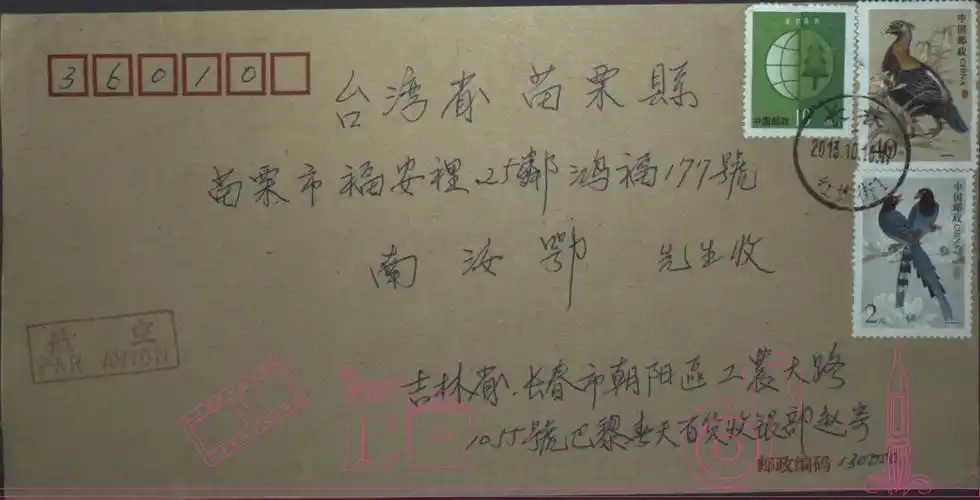 36010
台湾省 苗栗縣
苗栗市福安裡25鄰鴻福177號
南汝鄂 先生收
航空
PAR AVION
吉林省、长春市朝阳區工農大路
1055號巴黎春天百货收银部赵寄
邮政编码 130000
中国邮政
中国邮政 CHINA
中国邮政 CHINA
2元
2013.10.1